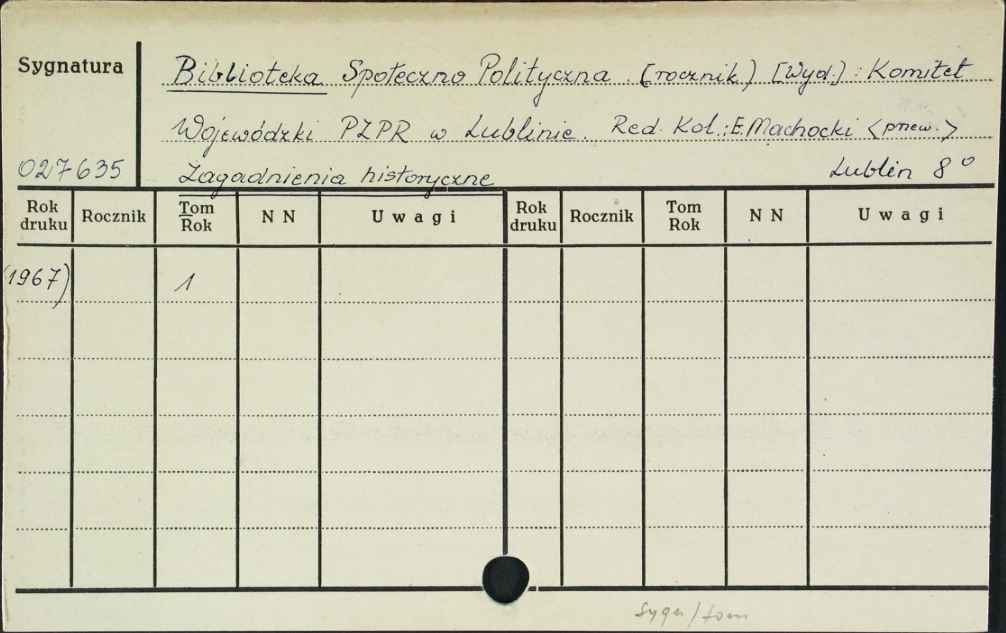 Sygnatura
Biblioteka Społeczno Polityczna. (rocznik) [Wyd.]: Komitet
Wojewódzki PZPR w Lublinie. Red. Kol.: E. Machocki <przew.>
027635 Zagadnienia historyczne Lublin 8°
Rok druku Rocznik Tom Rok N N Uwagi Rok druku Rocznik Tom Rok N N Uwagi
(1967) 1
Sygn/tom